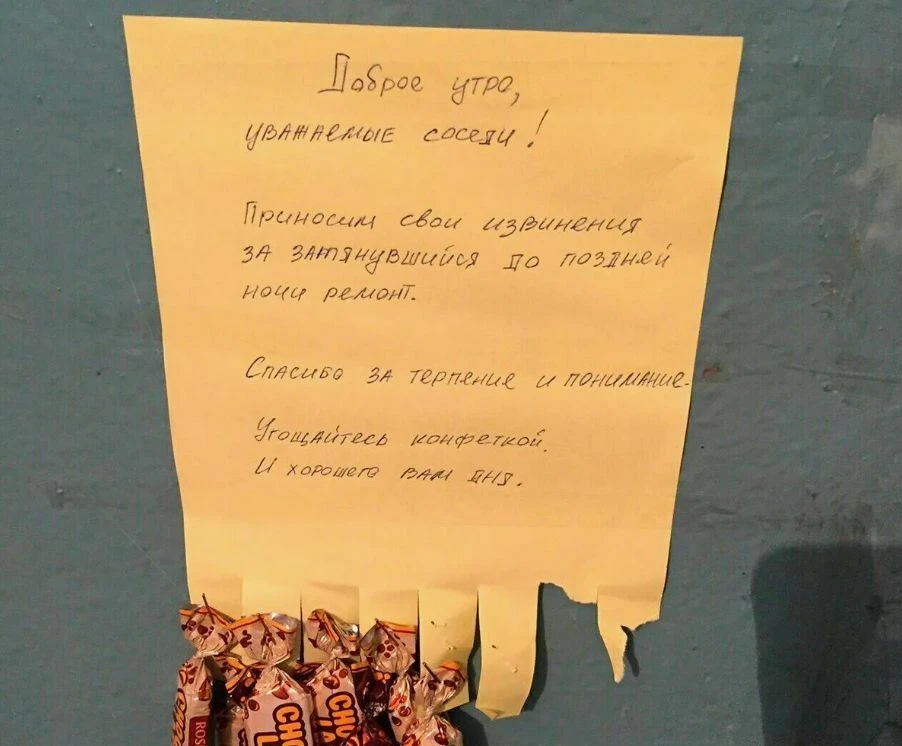 Доброе утро,
уважаемые соседи!
Приносим свои извинения
за затянувшийся до поздней
ночи ремонт.
Спасибо за терпение и понимание.
Угощайтесь конфеткой.
И хорошего вам дня.
ROS
CHO